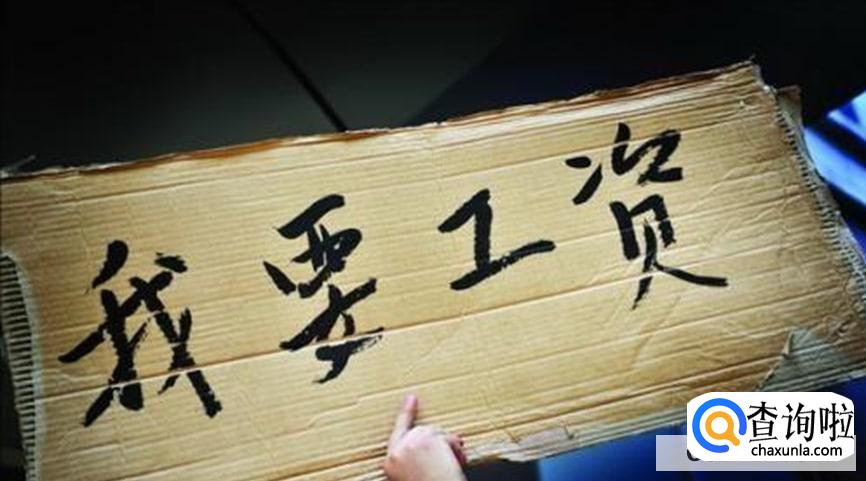 我要工资
查询啦
chaxunla.com